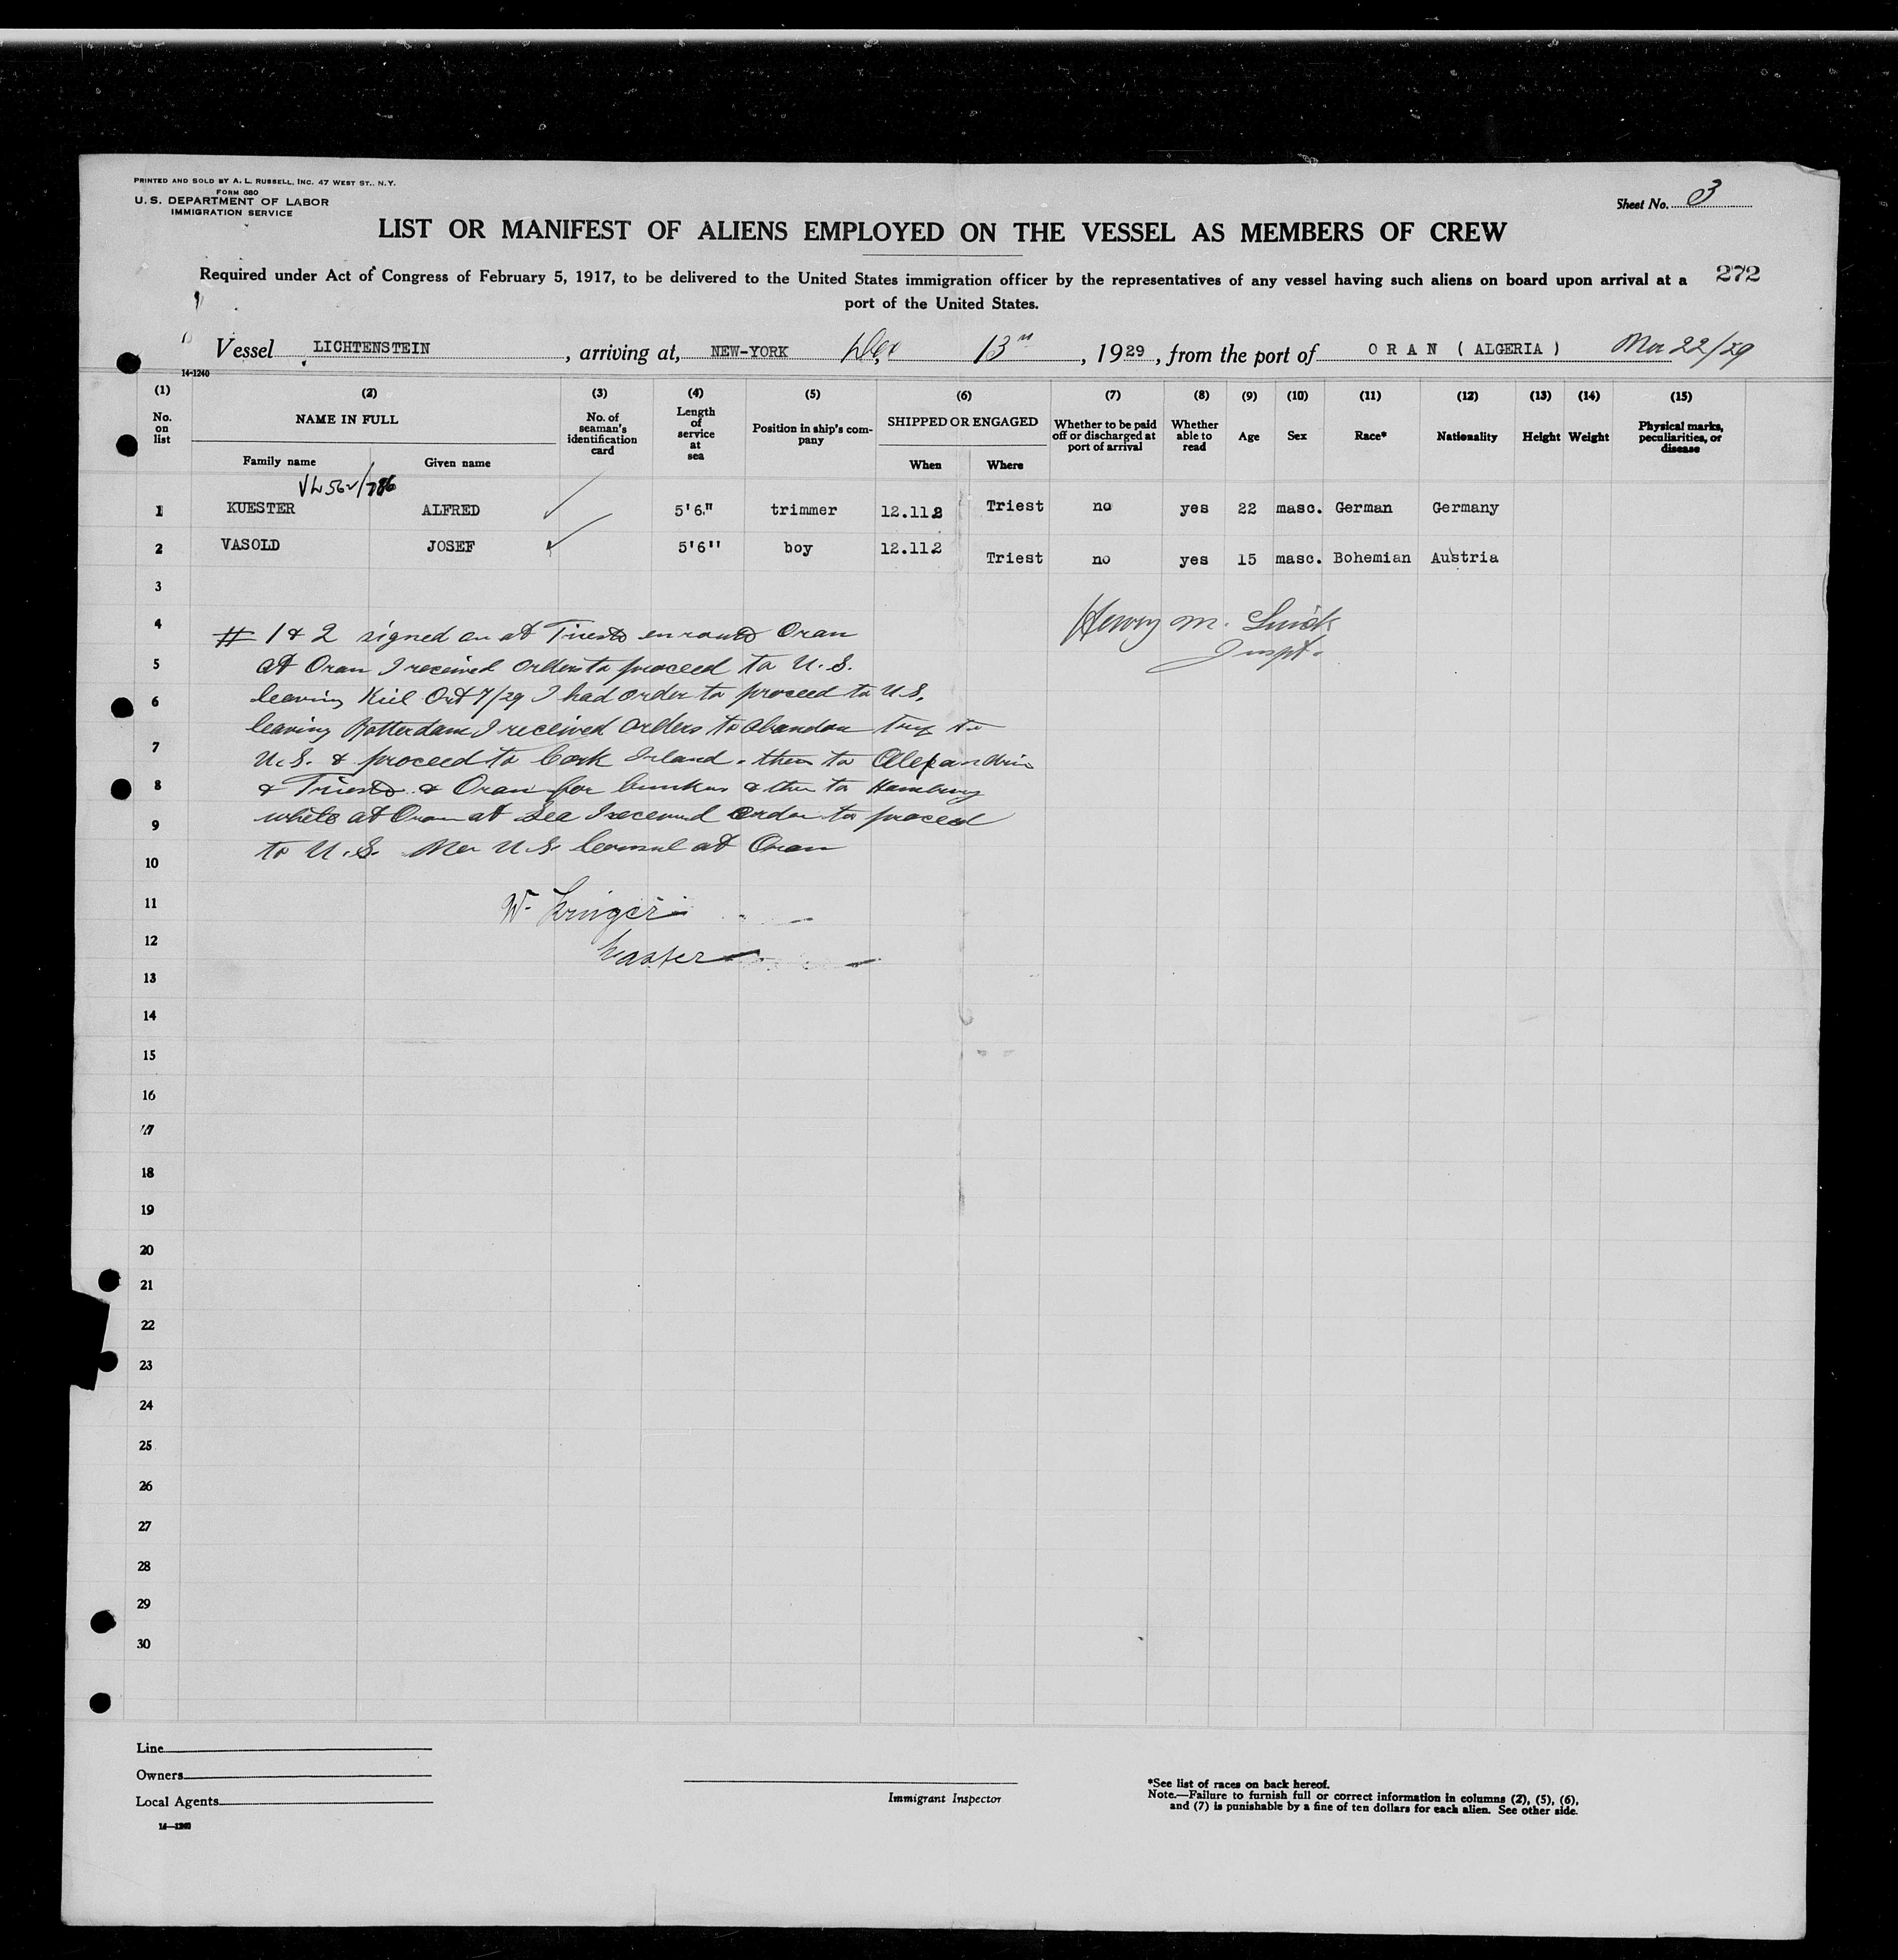 PRINTED AND SOLD BY A. L. RUSSELL, INC. 47 WEST ST., N.Y.
FORM 680
U. S. DEPARTMENT OF LABOR
IMMIGRATION SERVICE
Sheet No. 3
LIST OR MANIFEST OF ALIENS EMPLOYED ON THE VESSEL AS MEMBERS OF CREW
Required under Act of Congress of February 5, 1917, to be delivered to the United States immigration officer by the representatives of any vessel having such aliens on board upon arrival at a 272
port of the United States.
Vessel LICHTENSTEIN, arriving at, NEW-YORK Dec 13, 1929, from the port of ORAN (ALGERIA) 22/29
14-1240
(1) (2) (3) (4) (5) (6) (7) (8) (9) (10) (11) (12) (13) (14) (15)
No. on list NAME IN FULL No. of seaman's identification card Length of service at sea Position in ship's company SHIPPED OR ENGAGED Whether to be paid off or discharged at port of arrival Whether able to read Age Sex Race* Nationality Height Weight Physical marks, peculiarities, or disease
Family name Given name When Where
1 KUESTER ALFRED 5'6." trimmer 12.112 Triest no yes 22 masc. German Germany
2 VASOLD JOSEF 5'6" boy 12.112 Triest no yes 15 masc. Bohemian Austria
3
4 # 1 & 2 signed on at Trieste enroute Oran
Henry M.
Inspt.
5 at Oran I received orders to proceed to U.S.
6 leaving Kiel Oct 7/29 I had order to proceed to U.S.
leaving Rotterdam I received orders to abandon trip to
7 U.S. & proceed to Cork Ireland then to Alexandria
8 & Trieste & Oran for bunkers & then to Hamburg
9 while at Oran at Sea I received order to proceed
10 to U.S. U.S. Consul at Oran
11 W.
12 Master
13
14
15
16
17
18
19
20
21
22
23
24
25
26
27
28
29
30
Line
Owners
Local Agents
14—1240
Immigrant Inspector
*See list of races on back hereof.
Note.—Failure to furnish full or correct information in columns (2), (5), (6),
and (7) is punishable by a fine of ten dollars for each alien. See other side.